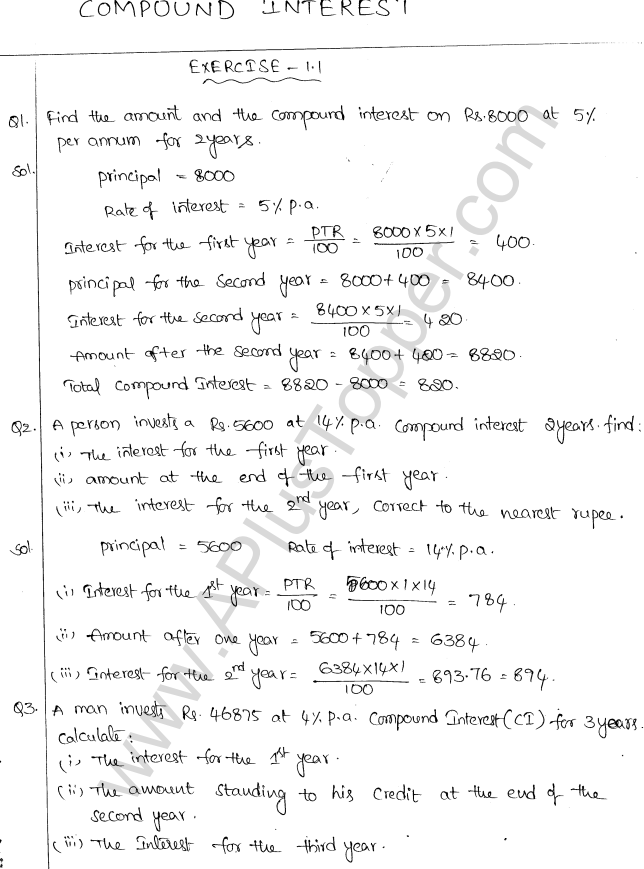 COMPOUND INTEREST
EXERCISE - 1.1
Q1. Find the amount and the compound interest on Rs.8000 at 5%
per annum for 2years.
Sol. principal = 8000
Rate of interest = 5% p.a.
Interest for the first year = PTR/100 = 8000×5×1/100 = 400.
principal for the second year = 8000+400 = 8400.
Interest for the second year = 8400×5×1/100 = 420.
Amount after the second year = 8400+420 = 8820.
Total Compound Interest = 8820 - 8000 = 820.
Q2. A person invests a Rs.5600 at 14% p.a. Compound interest 2years. find:
(i) The interest for the first year.
(ii) amount at the end of the first year.
(iii) The interest for the 2nd year, correct to the nearest rupee.
Sol. principal = 5600 Rate of interest = 14% p.a.
(i) Interest for the 1st year = PTR/100 = 5600×1×14/100 = 784.
(ii) Amount after one year = 5600+784 = 6384.
(iii) Interest for the 2nd year = 6384×14×1/100 = 893.76 = 894.
Q3. A man invests Rs. 46875 at 4% p.a. Compound Interest(CI) for 3years.
Calculate:
(i) The interest for the 1st year.
(ii) The amount standing to his credit at the end of the
second year.
(iii) The Interest for the third year.
www.APlusTopper.com